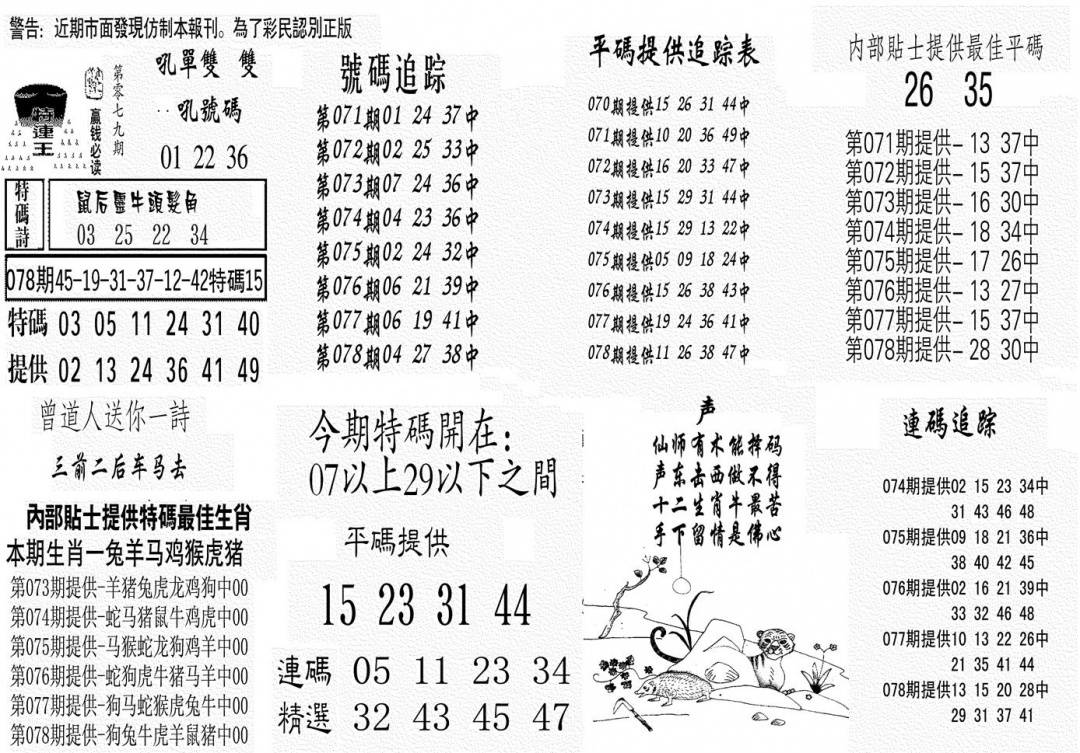 警告: 近期市面發現仿制本報刊。為了彩民認別正版
特連王
贏钱必读
第零七九期
吼單雙 雙
吼號碼
01 22 36
特碼詩
鼠后靈牛頭髮角
03 25 22 34
078期45-19-31-37-12-42特碼15
特碼 03 05 11 24 31 40
提供 02 13 24 36 41 49
號碼追踪
第071期01 24 37中
第072期02 25 33中
第073期07 24 36中
第074期04 23 36中
第075期02 24 32中
第076期06 21 39中
第077期06 19 41中
第078期04 27 38中
平碼提供追踪表
070期提供15 26 31 44中
071期提供10 20 36 49中
072期提供16 20 33 47中
073期提供15 29 31 44中
074期提供15 29 13 22中
075期提供05 09 18 24中
076期提供15 26 38 43中
077期提供19 24 36 41中
078期提供11 26 38 47中
内部貼士提供最佳平碼
26 35
第071期提供- 13 37中
第072期提供- 15 37中
第073期提供- 16 30中
第074期提供- 18 34中
第075期提供- 17 26中
第076期提供- 13 27中
第077期提供- 15 37中
第078期提供- 28 30中
曾道人送你一詩
三前二后车马去
内部貼士提供特碼最佳生肖
本期生肖一兔羊马鸡猴虎猪
第073期提供-羊猪兔虎龙鸡狗中00
第074期提供-蛇马猪鼠牛鸡虎中00
第075期提供-马猴蛇龙狗鸡羊中00
第076期提供-蛇狗虎牛猪马羊中00
第077期提供-狗马蛇猴虎兔牛中00
第078期提供-狗兔牛虎羊鼠猪中00
今期特碼開在:
07以上29以下之間
平碼提供
15 23 31 44
連碼 05 11 23 34
精選 32 43 45 47
声
仙师有术能择码
声东击西做不得
十二生肖牛最苦
手下留情是佛心
連碼追踪
074期提供02 15 23 34中
31 43 46 48
075期提供09 18 21 36中
38 40 42 45
076期提供02 16 21 39中
33 32 46 48
077期提供10 13 22 26中
21 35 41 44
078期提供13 15 20 28中
29 31 37 41